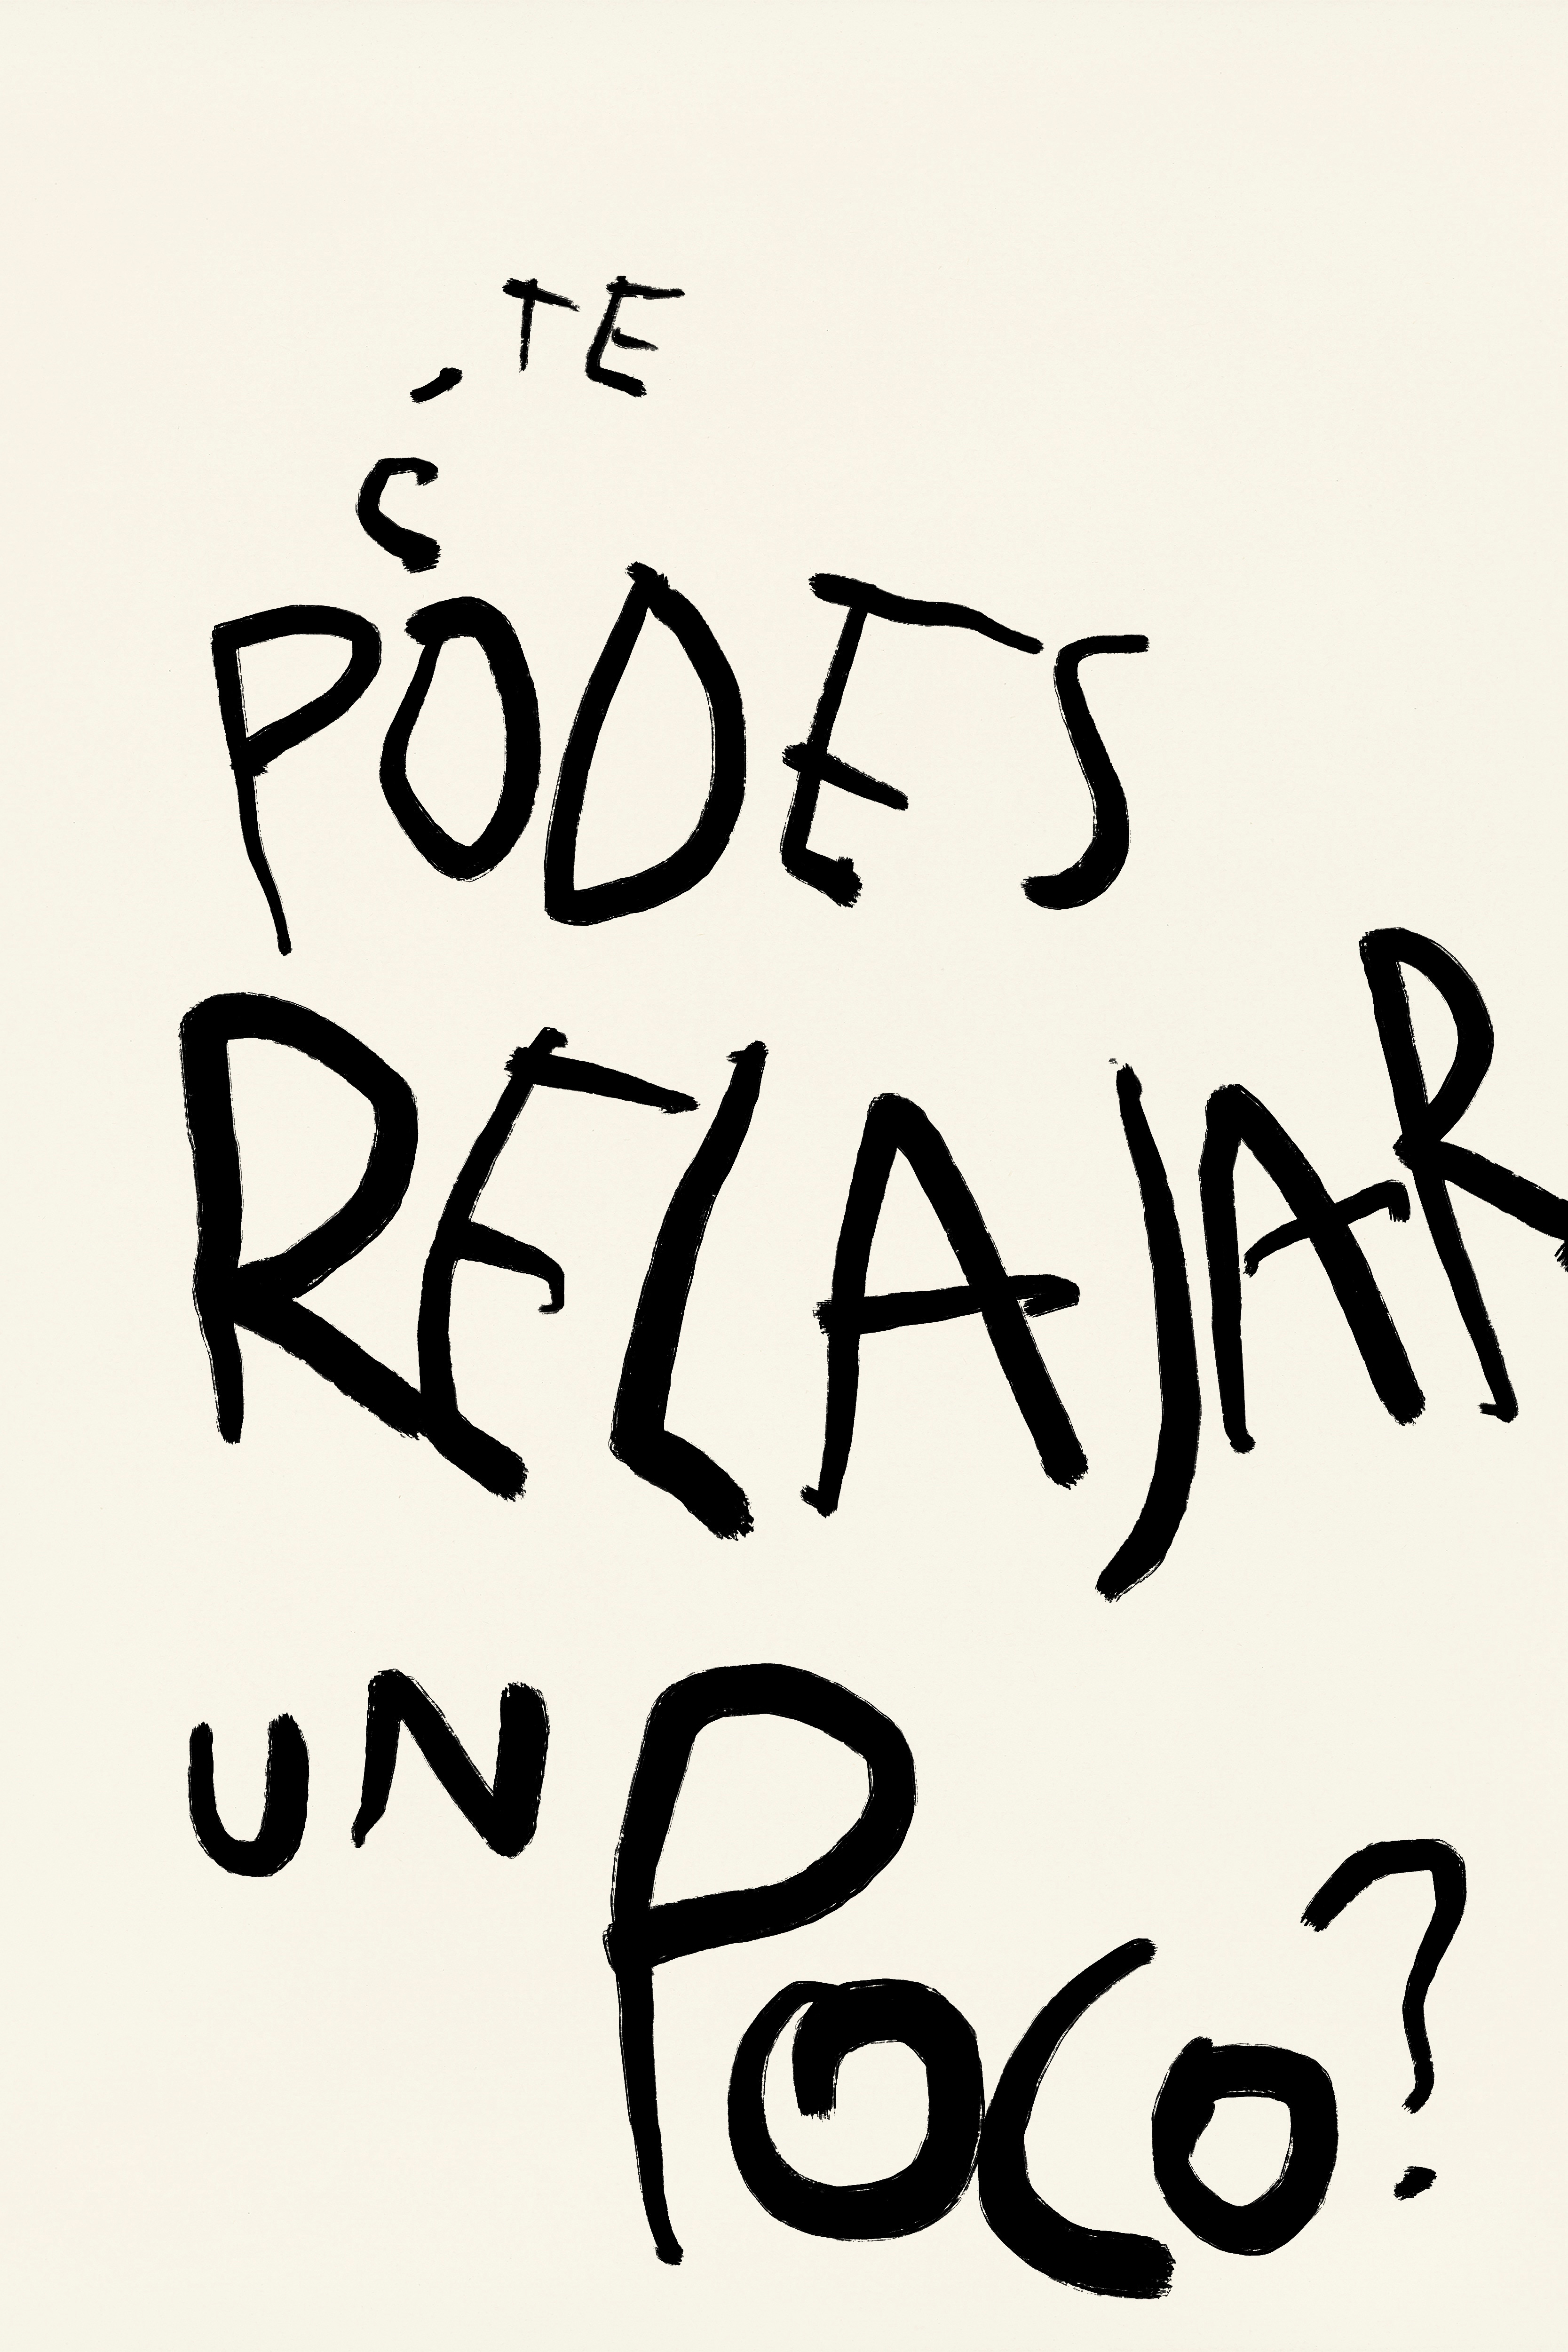 ¿TE
PODES
RELAJAR
UN POCO?